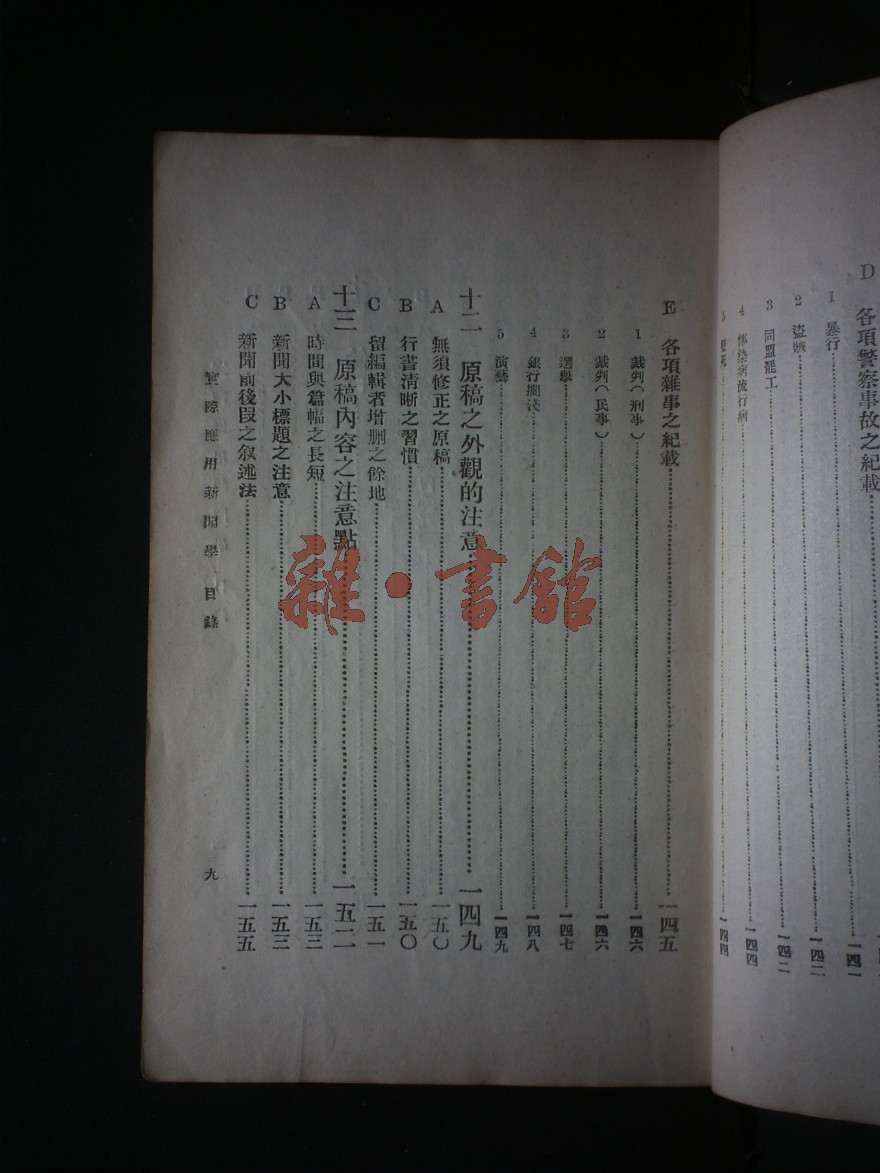 D 各項警察事故之紀載
1 暴行⋯⋯一四一
2 盜賊⋯⋯一四二
3 同盟罷工⋯⋯一四二
4 傳染病流行病⋯⋯一四四
5 ⋯⋯一四四
E 各項雜事之紀載⋯⋯一四五
1 裁判（刑事）⋯⋯一四六
2 裁判（民事）⋯⋯一四六
3 選擧⋯⋯一四七
4 銀行擱淺⋯⋯一四八
5 演藝⋯⋯一四九
十二 原稿之外觀的注意⋯⋯一四九
A 無須修正之原稿⋯⋯一五〇
B 行書淸晰之習慣⋯⋯一五〇
C 留編輯者增删之餘地⋯⋯一五一
十三 原稿內容之注意點⋯⋯一五二
A 時間與篇幅之長短⋯⋯一五三
B 新聞大小標題之注意⋯⋯一五三
C 新聞前後段之叙述法⋯⋯一五五
實際應用新聞學 目錄
九
雜·書館